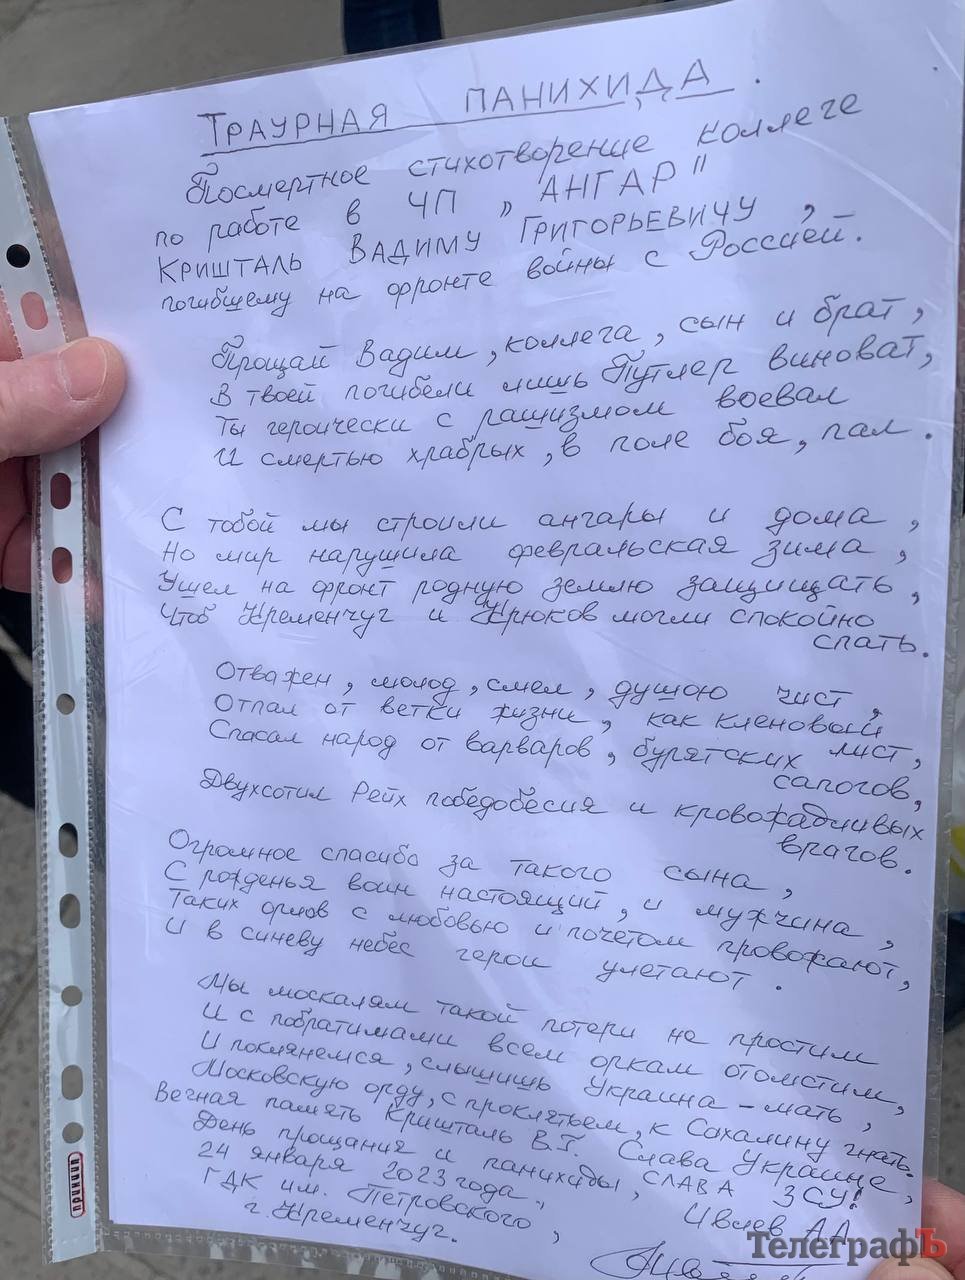 ТРАУРНАЯ ПАНИХИДА.
Посмертное стихотворение коллеге
по работе в ЧП „АНГАР"
КРИШТАЛЬ ВАДИМУ ГРИГОРЬЕВИЧУ,
погибшему на фронте войны с Россией.
Прощай Вадим, коллега, сын и брат,
В твоей погибели лишь Путлер виноват,
Ты героически с рашизмом воевал
И смертью храбрых, в поле боя, пал.
С тобой мы строили ангары и дома,
Но мир нарушила февральская зима,
Ушел на фронт родную землю защищать,
Чтоб Кременчуг и Крюков могли спокойно
спать.
Отважен, молод, смел, душою чист,
Отпал от ветки жизни, как кленовый
лист,
Спасал народ от варваров, бурятских
сапогов,
Двухсотил Рейх победобесия и кровожадливых
врагов.
Огромное спасибо за такого сына,
С рожденья воин настоящий, и мужчина,
Таких орлов с любовью и почетом провожают,
И в синеву небес герои улетают.
Мы москалям такой потери не простим
И с побратимами всем оркам отомстим,
И поклянемся, слышишь Украина-мать,
Московскую орду, с проклятьем, к Сахалину гнать.
Вечная память Кришталь В.Г. Слава Украине,
День прощания и панихиды, СЛАВА ЗСУ!
24 января 2023 года,
ГДК им. Петровского,
г. Кременчуг.
АА
ТелеграфЪ